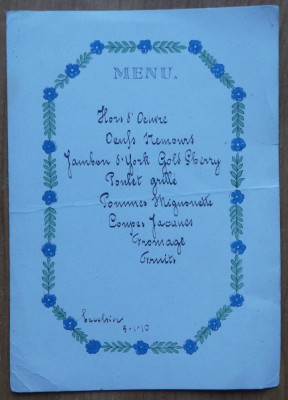 MENU.
Hors d'Oeuvre
Oeufs Nemours
Jambon d'York Gold Cherry
Poulet grillé
Pommes Mignonette
Coupes Jacques
Fromage
Fruits